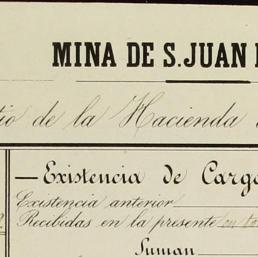 MINA DE S. JUAN
de la Hacienda
—Existencia de Carg
Existencia anterior
Recibidas en la presente
Suman